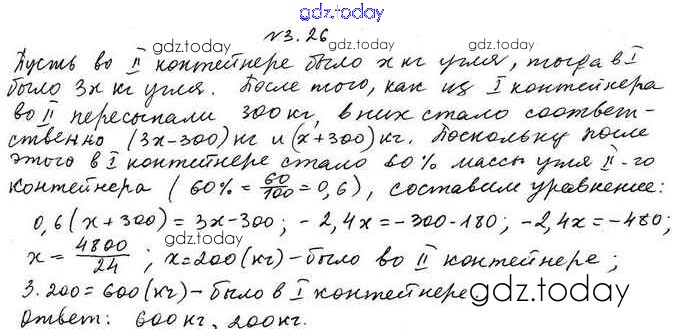 gdz.today
№3.26
gdz.today gdz.today
Пусть во II контейнере было x кг угля, тогда в I
было 3x кг угля. После того, как из I контейнера
во II пересыпали 300 кг, в них стало соответ-
gdz.today gdz.today
ственно (3x-300) кг и (x+300) кг. Поскольку после
этого в I контейнере стало 60% массы угля II-го
контейнера (60% = 60/100 = 0,6), составим уравнение:
gdz.today gdz.today
0,6(x+300) = 3x-300; -2,4x = -300-180; -2,4x = -480;
gdz.today
x = 4800/24; x = 200 (кг) - было во II контейнере;
3·200 = 600 (кг) - было в I контейнере
gdz.today
Ответ: 600 кг, 200 кг.